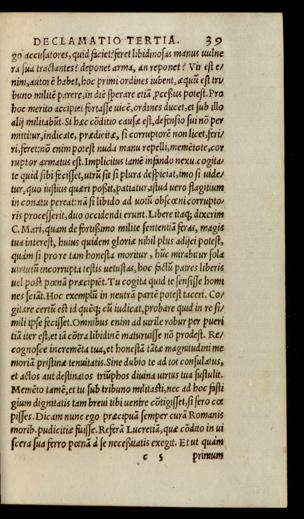 DECLAMATIO TERTIA. 39
go accusatores, quid faciet? feret libidinosas manus uulne
ra sua tractantes? deponet arma, an reponet? Vir est e/
nim, autorē habet, hoc primi ordines iubent, æquū est tri/
buno militē parere, in diē sperare etiā ꝓcessus potest. Pro
hoc merito accipiet fortasse uicē, ordines ducet, et sub illo
alij militabūt. Si hæc cōditio causæ est, defensio sui nō per
mittitur, indicate, prædicite, si corruptorē non licet, feri/
ri, feret: nō enim potest nuda manu repelli, memētote, cor
ruptor armatus est. Implicitus tamē infando nexu. cogita
te quid sibi fecisset, utrū sit si plura despiciat, imo si uide/
tur, quo iustius quæri possit, patiatur, istud uero flagitium
in conatu pereat: nā si libido ad uotū obscœni corrupto/
ris processerit, duo occidendi erunt. Libere itaq; dixerim
C. Mari, quam de fortissimo milite sententiā feras, magis
tua interest, huius quidem gloriæ nihil plus adijci potest,
quàm si pro re tam honesta moritur, hūc mirabitur sola
uirtutū incorrupta testis uetustas, hoc factū patres liberis
uel post pœnā præcipiēt. Tu cogita quid te sensisse homi
nes sciāt. Hoc exemplū in neutrā partē potest taceri. Co/
gitare certū est id quēq; cū iudicat, probare quid in re si/
mili ipse fecisset. Omnibus enim ad uirile robur per pueri
tiā iter est, et iā cōtra libidinē maturuisse nō prodest. Re/
cognosce incremēta tua, et honestā tātæ magnitudini me
moriā pristinæ tenuitatis. Sine dubio te ad tot consulatus,
et actos aut destinatos triūphos diuina uirtus tua sustulit.
Memēto tamē, et tu sub tribuno militasti, nec ad hoc fasti
gium dignitatis tam breui tibi uentre cōtigisset, si sero cœ
pisses. Dicam nunc ego præcipuā semper curā Romanis
morib. pudicitiæ fuisse. Referā Lucretiā, quæ cōdito in ui
scera sua ferro pœnā à se necessitatis exegit. Et ut quàm
c 5 primum